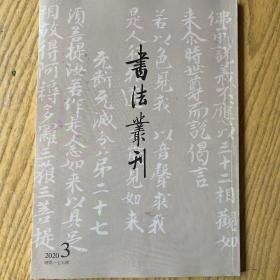 不應以三十二相觀如
來尒時世尊而說偈言
若以色見我 以音聲求我
是人行邪道 見如來
无斷无滅分弟二十七
須菩提汝若作是念如來以具足
相故得阿耨多羅三藐三菩提
書法叢刊
2020 3